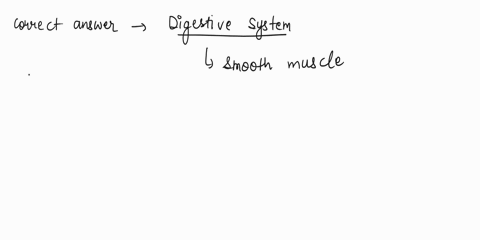 correct answer → Digestive System
↳ smooth muscle